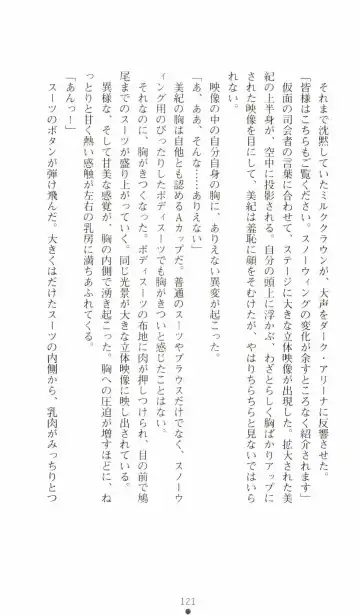 それまで沈黙していたミルククラウンが、大声をダーク・アリーナに反響させた。
「皆様はこちらもご覧ください。スノーウィングの変化が余すところなく紹介されます」
仮面の司会者の言葉に合わせて、ステージに大きな立体映像が出現した。拡大された美
紀の上半身が、空中に投影される。自分の頭上に浮かぶ、わざとらしく胸ばかりアップに
された映像を目にして、美紀は羞恥に顔をそむけたが、やはりちらちらと見ないではいら
れない。
映像の中の自分自身の胸に、ありえない異変が起こった。
「あ、ああ、そんな……ありえない」
美紀の胸は自他とも認めるＡカップだ。普通のスーツやブラウスだけでなく、スノーウ
ィング用のぴったりしたボディスーツでも胸がきついと感じたことはない。
それなのに、胸がきつくなった。ボディスーツの布地に肉が押しつけられ、目の前で鳩
尾までのスーツが盛り上がっていく。同じ光景が大きな立体映像に映し出されている。
異様な、そして甘美な感覚が、胸の内側で湧き起こった。胸への圧迫が増すほどに、ね
っとりと甘く熱い感触が左右の乳房に満ちあふれてくる。
「あんっ！」
スーツのボタンが弾け飛んだ。大きくはだけたスーツの内側から、乳肉がみっちりとつ
121